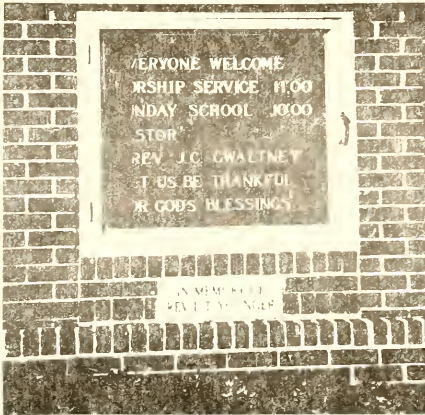 VERYONE WELCOME
ORSHIP SERVICE 11:00
NDAY SCHOOL 10:00
STOR
REV J.C. GWALTNEY
T US BE THANKFUL
OR GODS BLESSINGS
IN MEM
REV